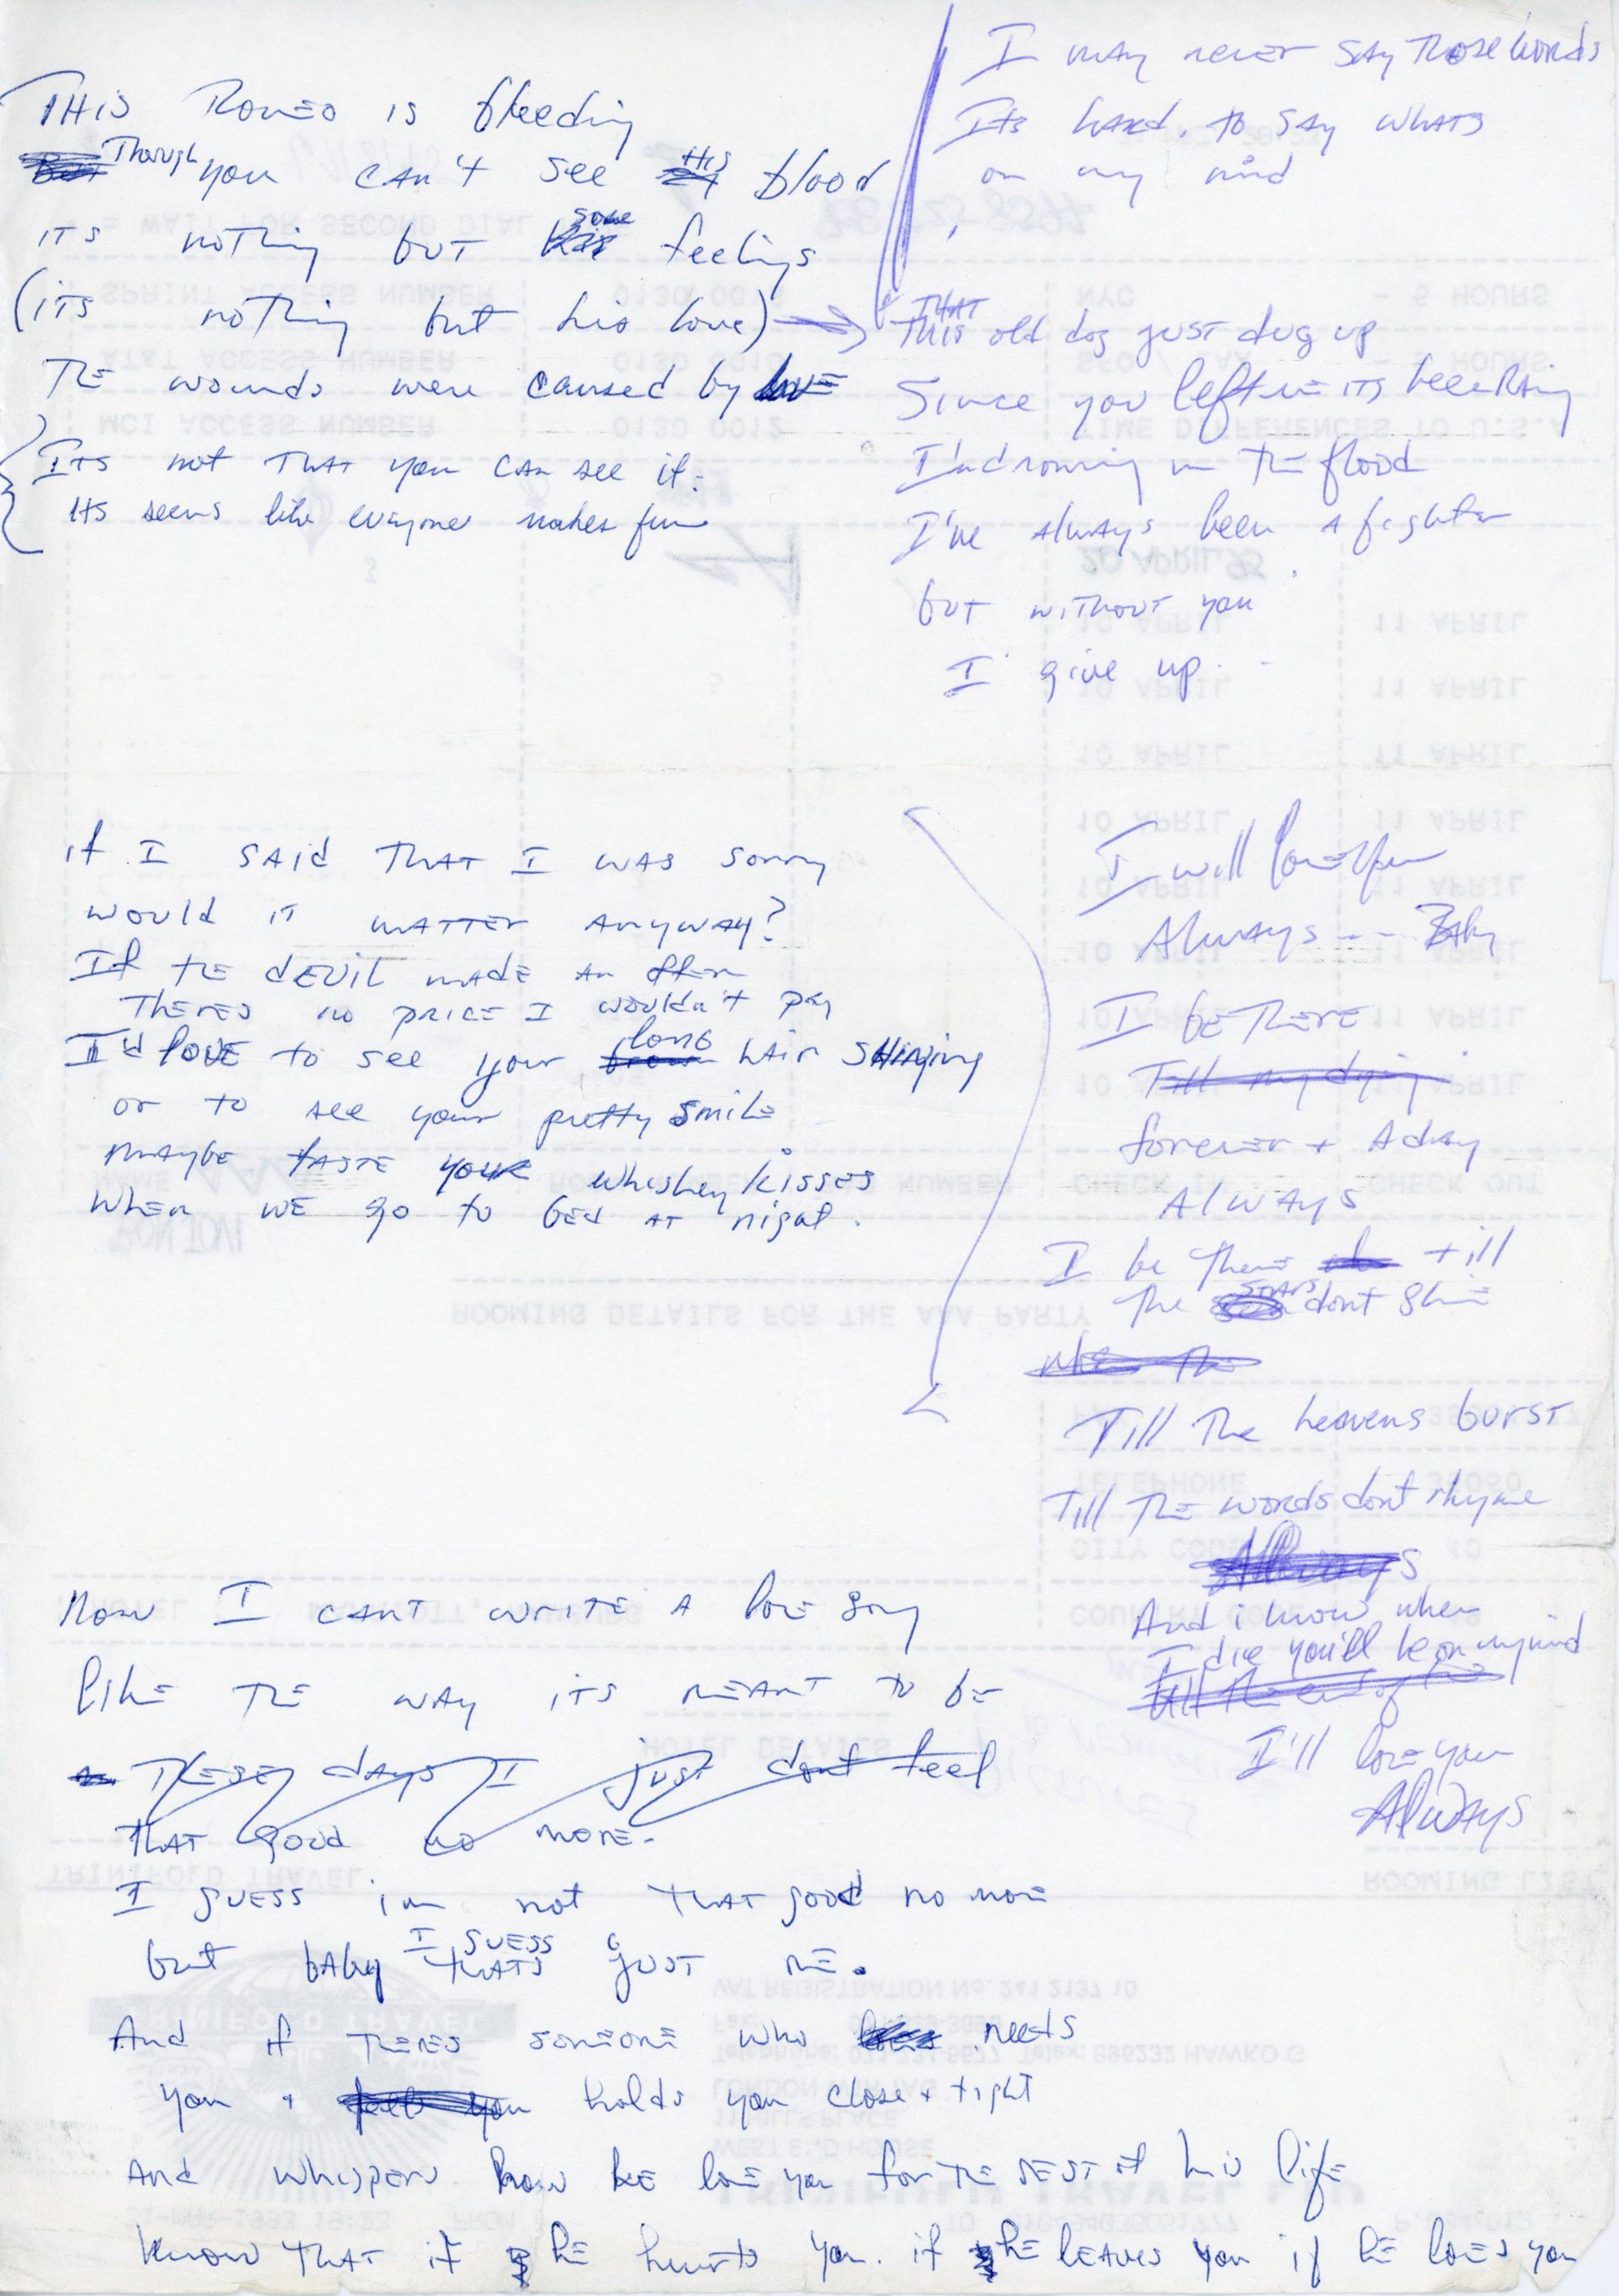 THIS ROMEO IS bleeding
Though you CAN'T see HIS blood
ITS nothing but some feelings
(ITS nothing but his love)
THE wounds were caused by love
ITS not THAT you CAN see it.
ITS seems like everyone makes fun
I may never SAY THose words
ITs hard. to SAY WHATS
on my mind
THAT
THIS old dog JUST dug up
Since you left me ITS been RAining
I'm drowning in THE flood
I've Always been A fighter
but without you
I give up.
if I SAId THAT I WAS sorry
would IT MATTER ANYWAY?
If THE dEVIL MADE AN offer
THERES no PRICE I wouldn't pay
I'd loVE to see your long hair SHINING
or to see your pretty Smile
MAYBE TASTE YOUR whiskey kisses
WHEN WE go to bed AT night.
I will love you
Always -- BAby
I bE THERE
Till my dying
forever + A day
AlWAYS
I be there till
The STARS dont Shine
When The
Till The heavens burST
Till THE words dont rhyme
Always
And i know when
I die you'll be on my mind
till the end of
I'll love you
AlwAYS
Now I CANT WRITE A love Song
like THE WAY ITS MEANT to bE
THESE days I just dont feel
THAT good no MORE.
I guESS im not THAT good no more
but bAby I guESS THATS JUST ME.
And if THERES SOMEONE who needs
you + feels you holds you close + tight
And whispers how he love you for THE REST of his life
Know THAT if he hurts you. if he LEAVES you if he loves you